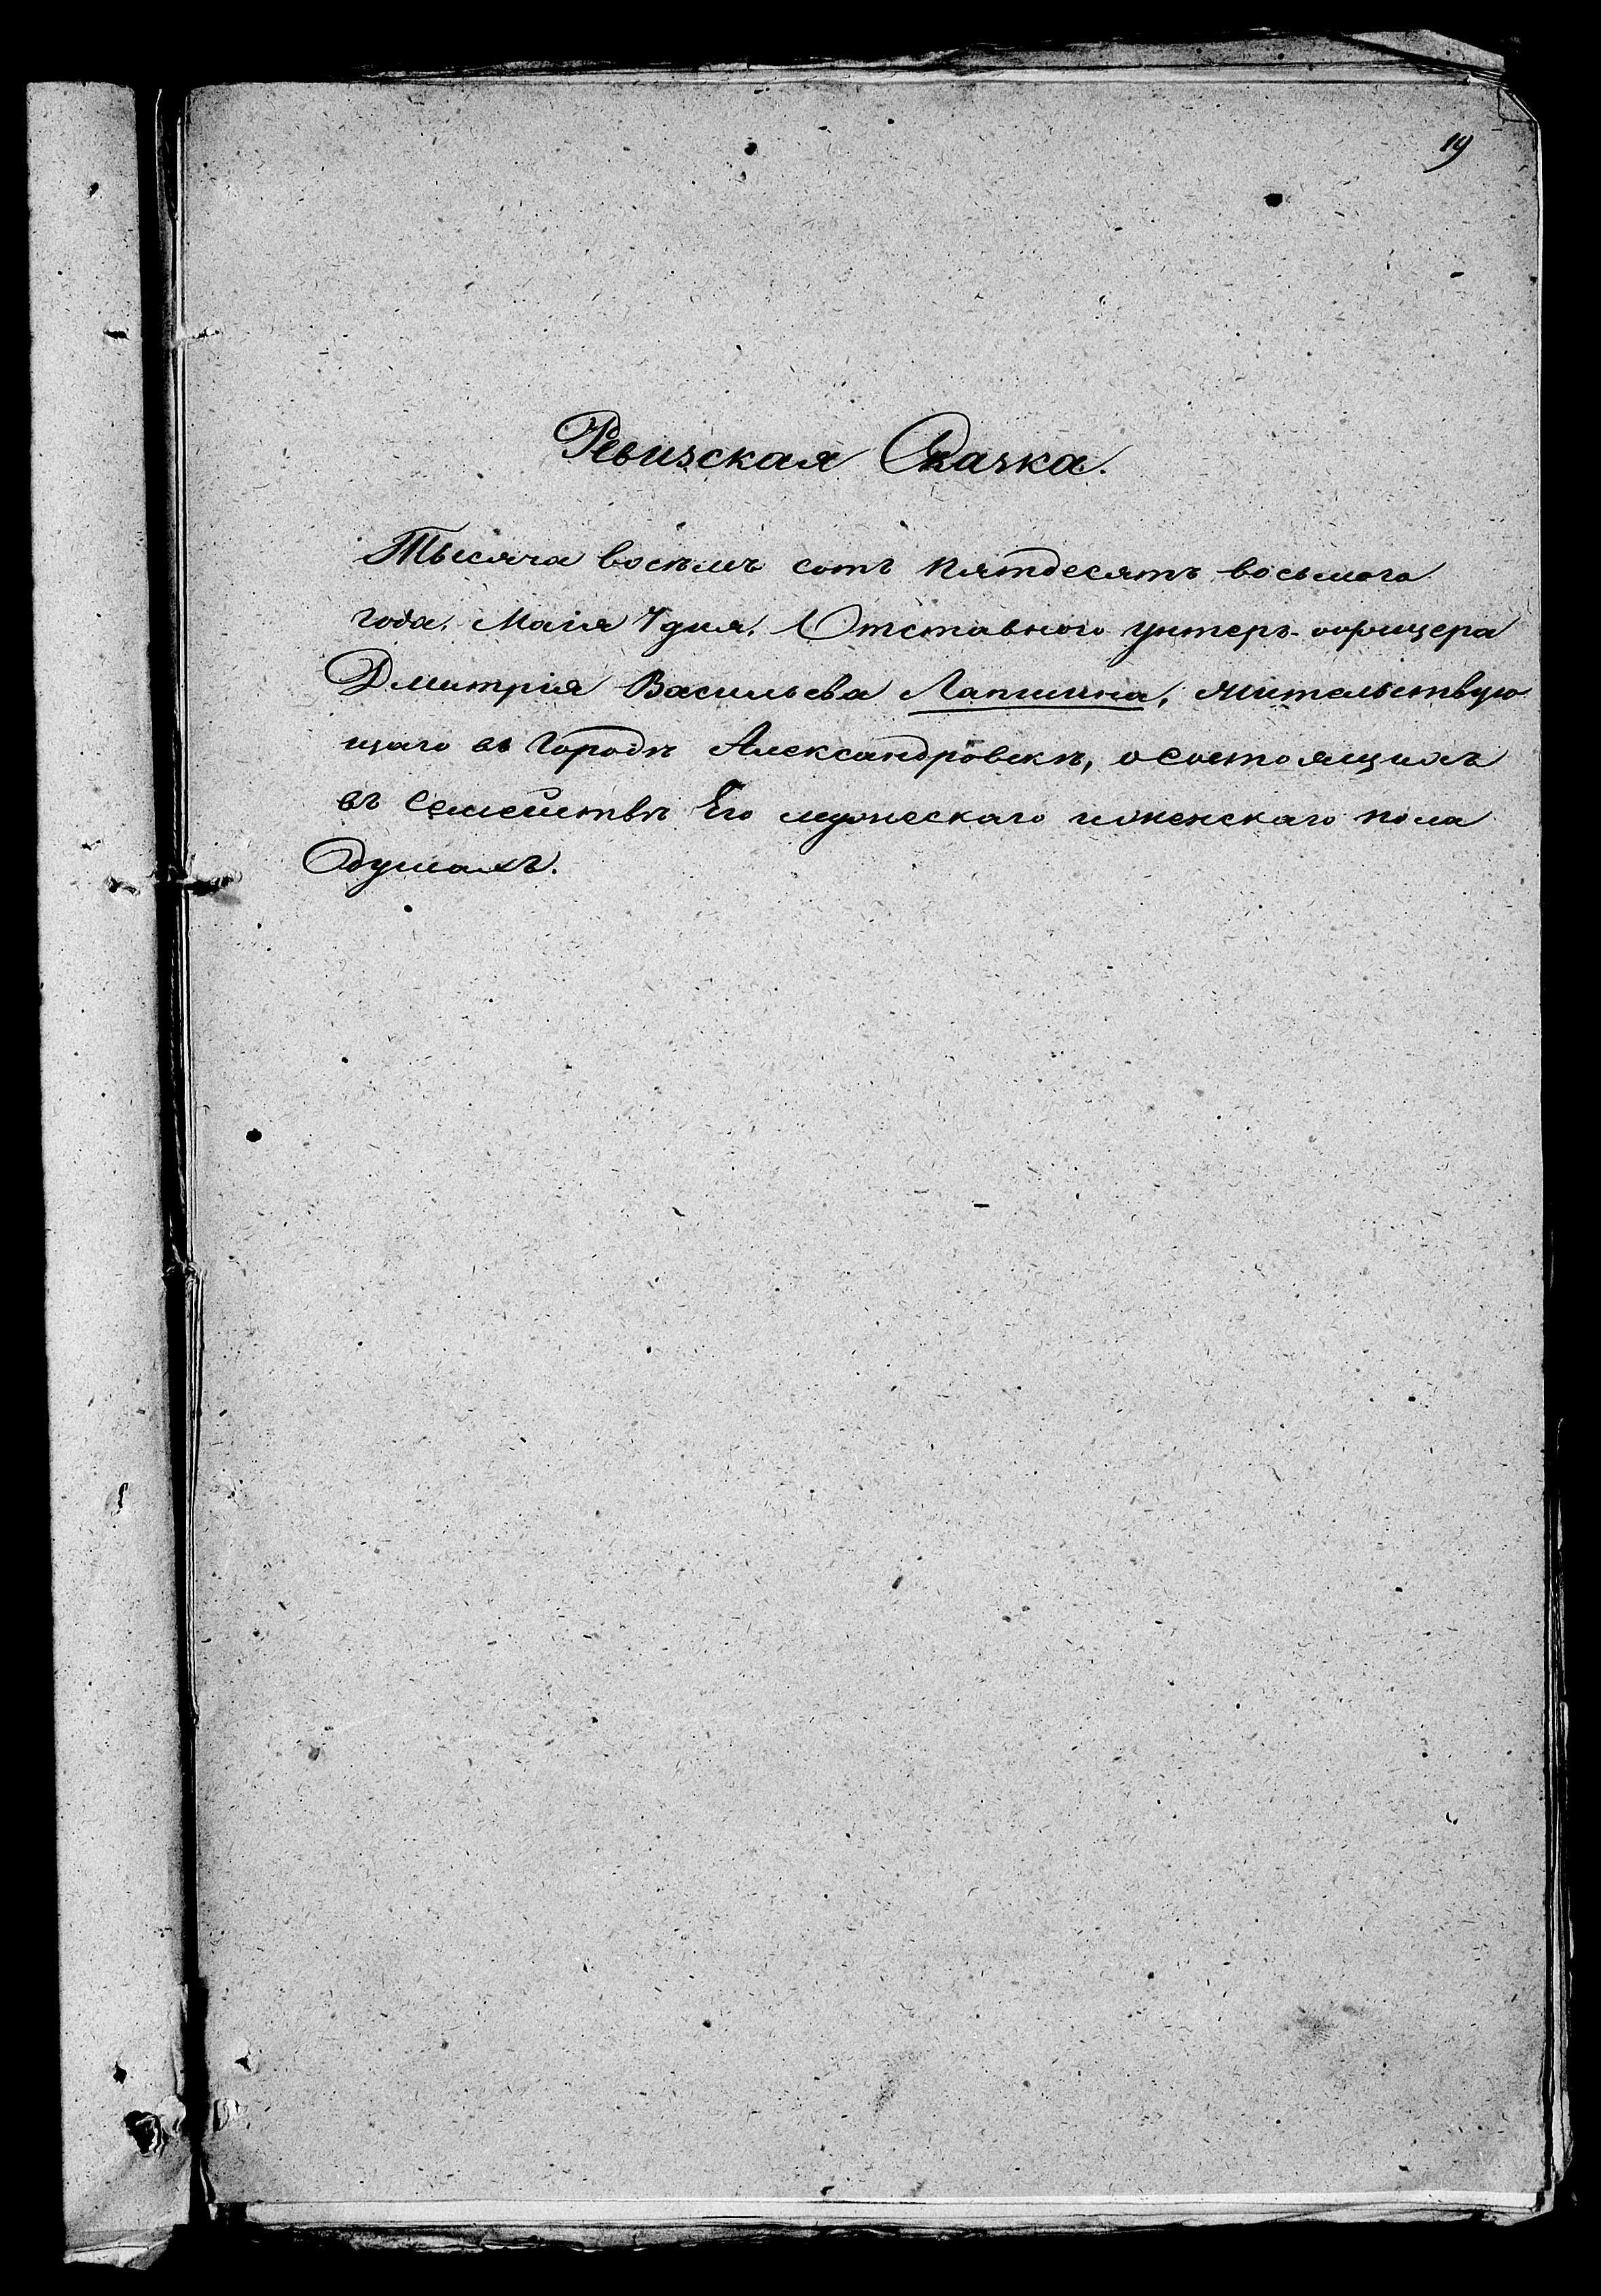 19
Ревизская Сказка.
Тысяча восемъ сотъ пятдесятъ восьмаго
года. Маія 7 дня. Отставного унтеръ-офицера
Дмитрія Васильева Лапшина, жительствую
щаго въ Городѣ Александровскѣ, о состоящихъ
въ семействѣ Его мужескаго и женскаго пола
душахъ.